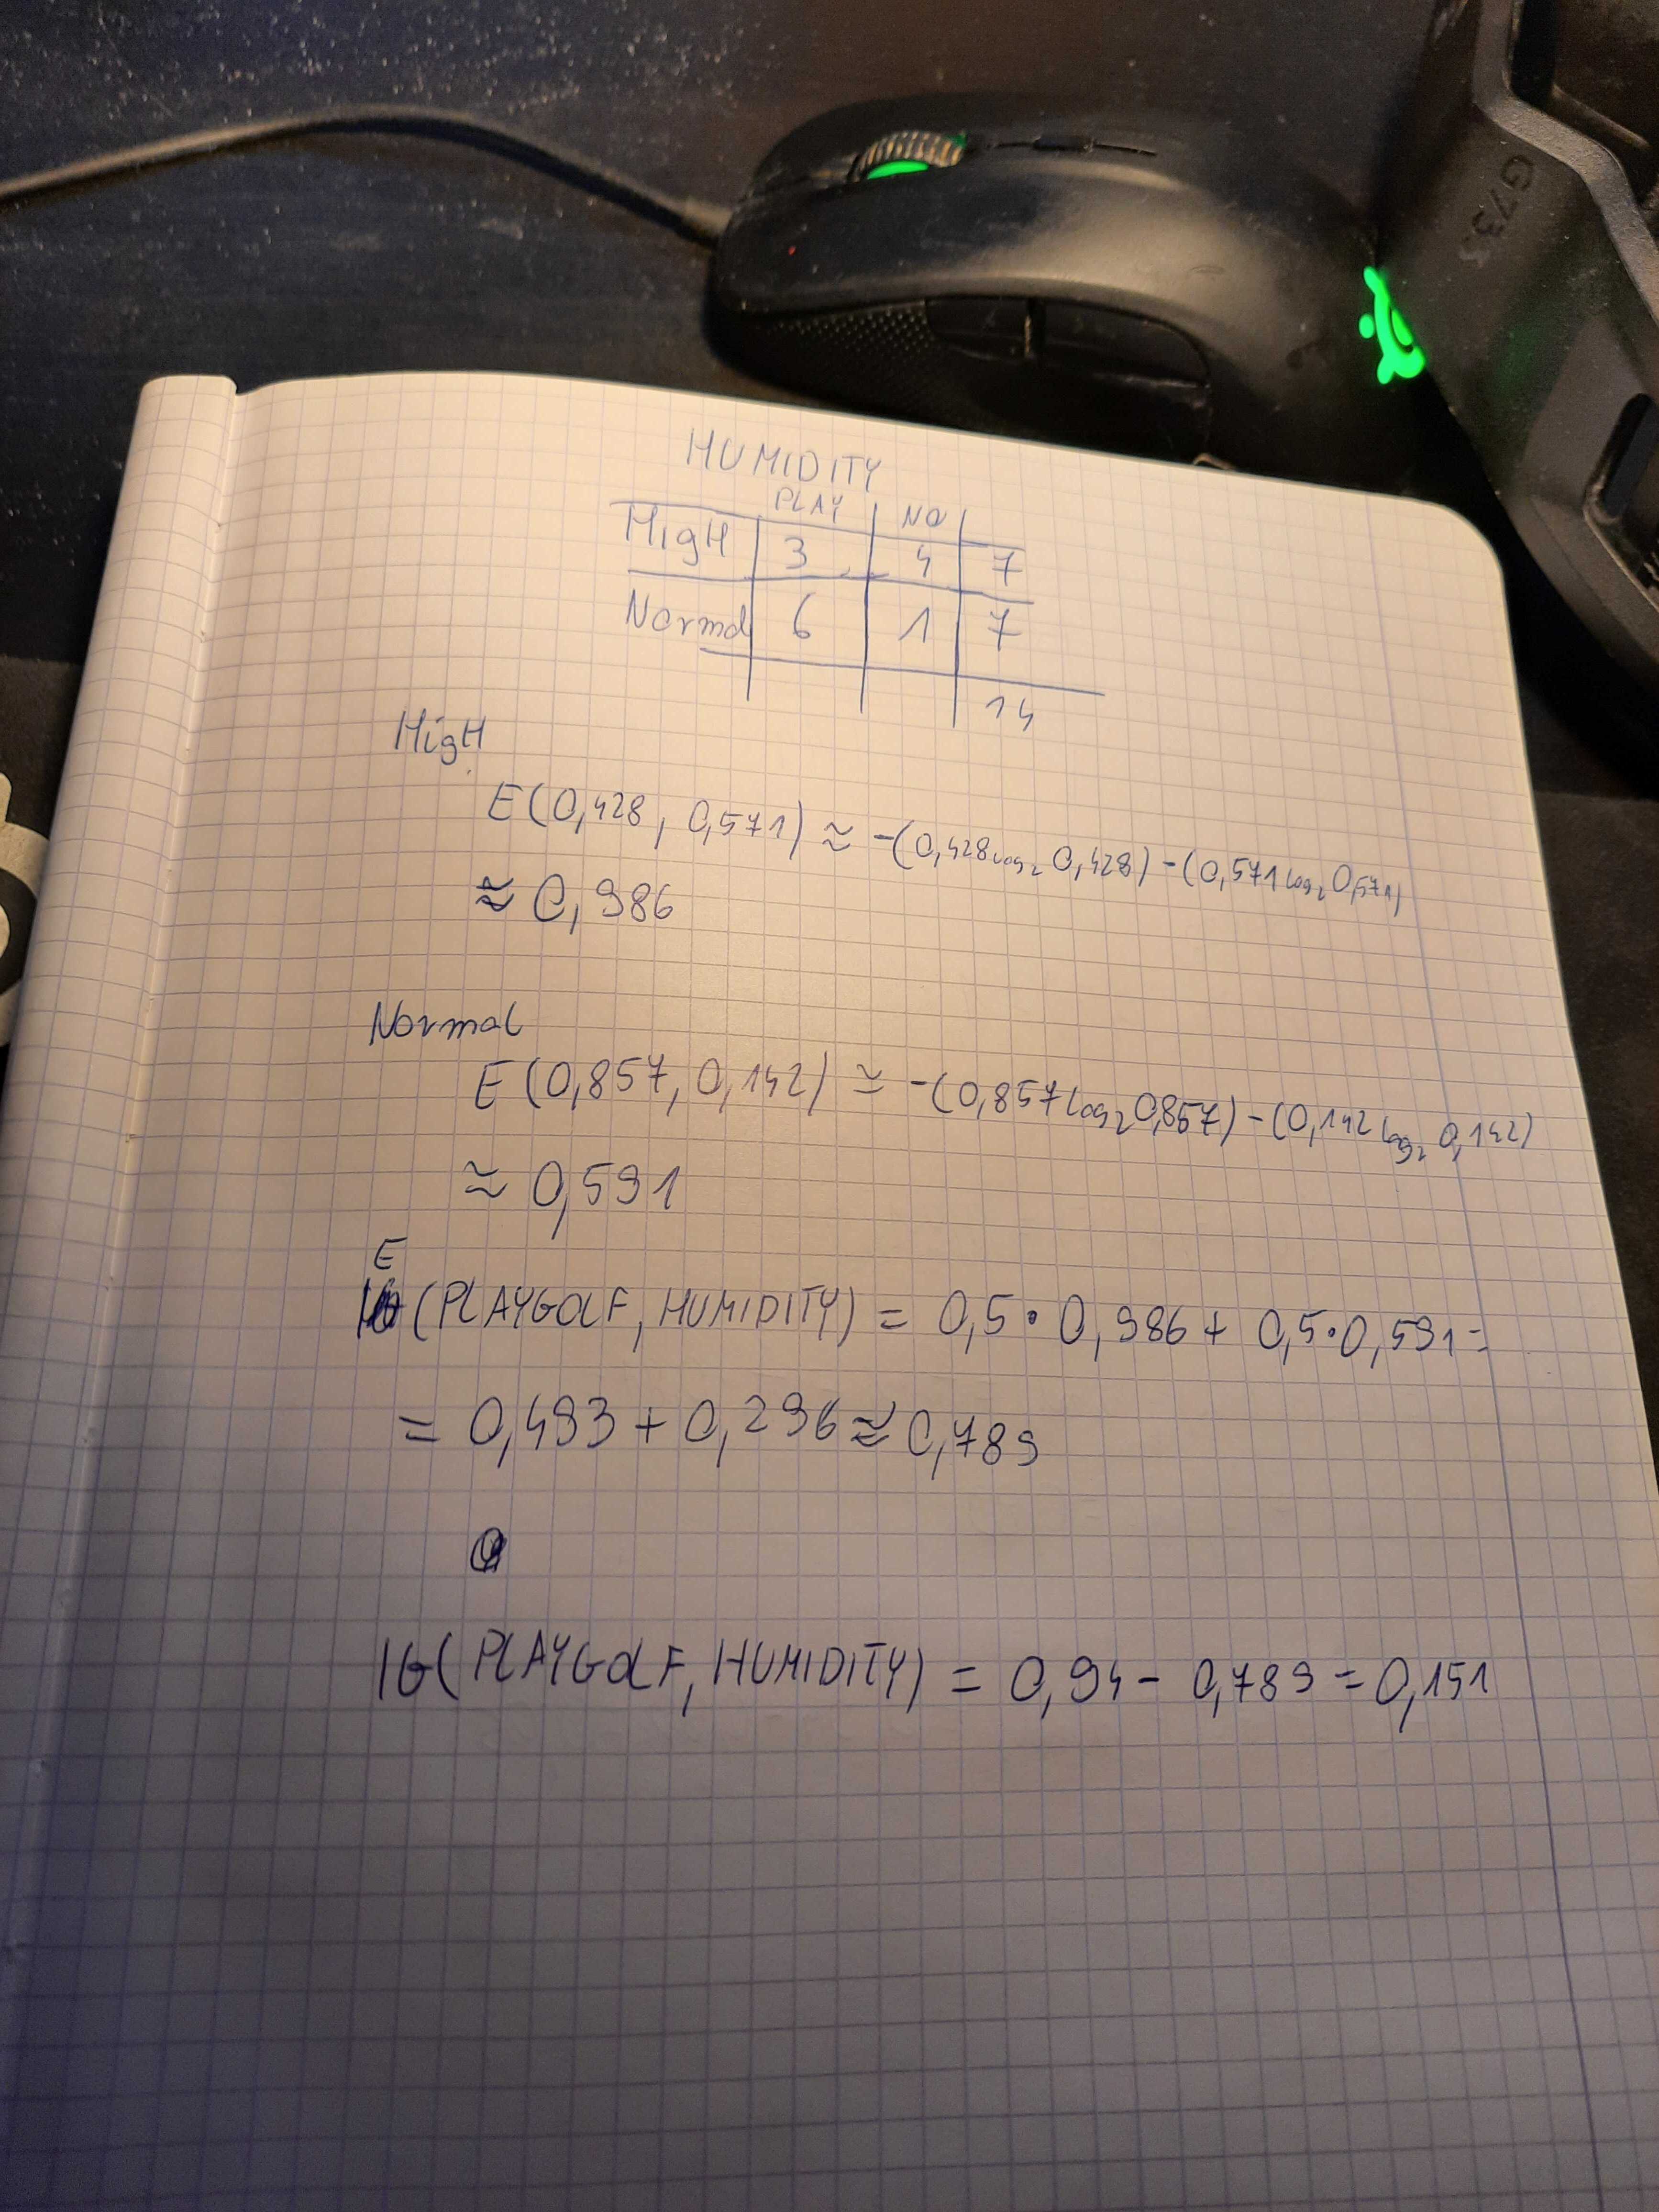 G733
HUMIDITY
PLAY NO
HigH 3 4 7
Normal 6 1 7
14
HigH
E(0,428, 0,571) ≈ -(0,428 log₂ 0,428) - (0,571 log₂ 0,571)
≈ 0,986
Normal
E(0,857, 0,142) ≃ -(0,857 log₂ 0,857) - (0,142 log₂ 0,142)
≈ 0,591
E
(PLAYGOLF, HUMIDITY) = 0,5 · 0,986 + 0,5 · 0,591 =
= 0,493 + 0,296 ≈ 0,789
IG(PLAYGOLF, HUMIDITY) = 0,94 - 0,789 = 0,151